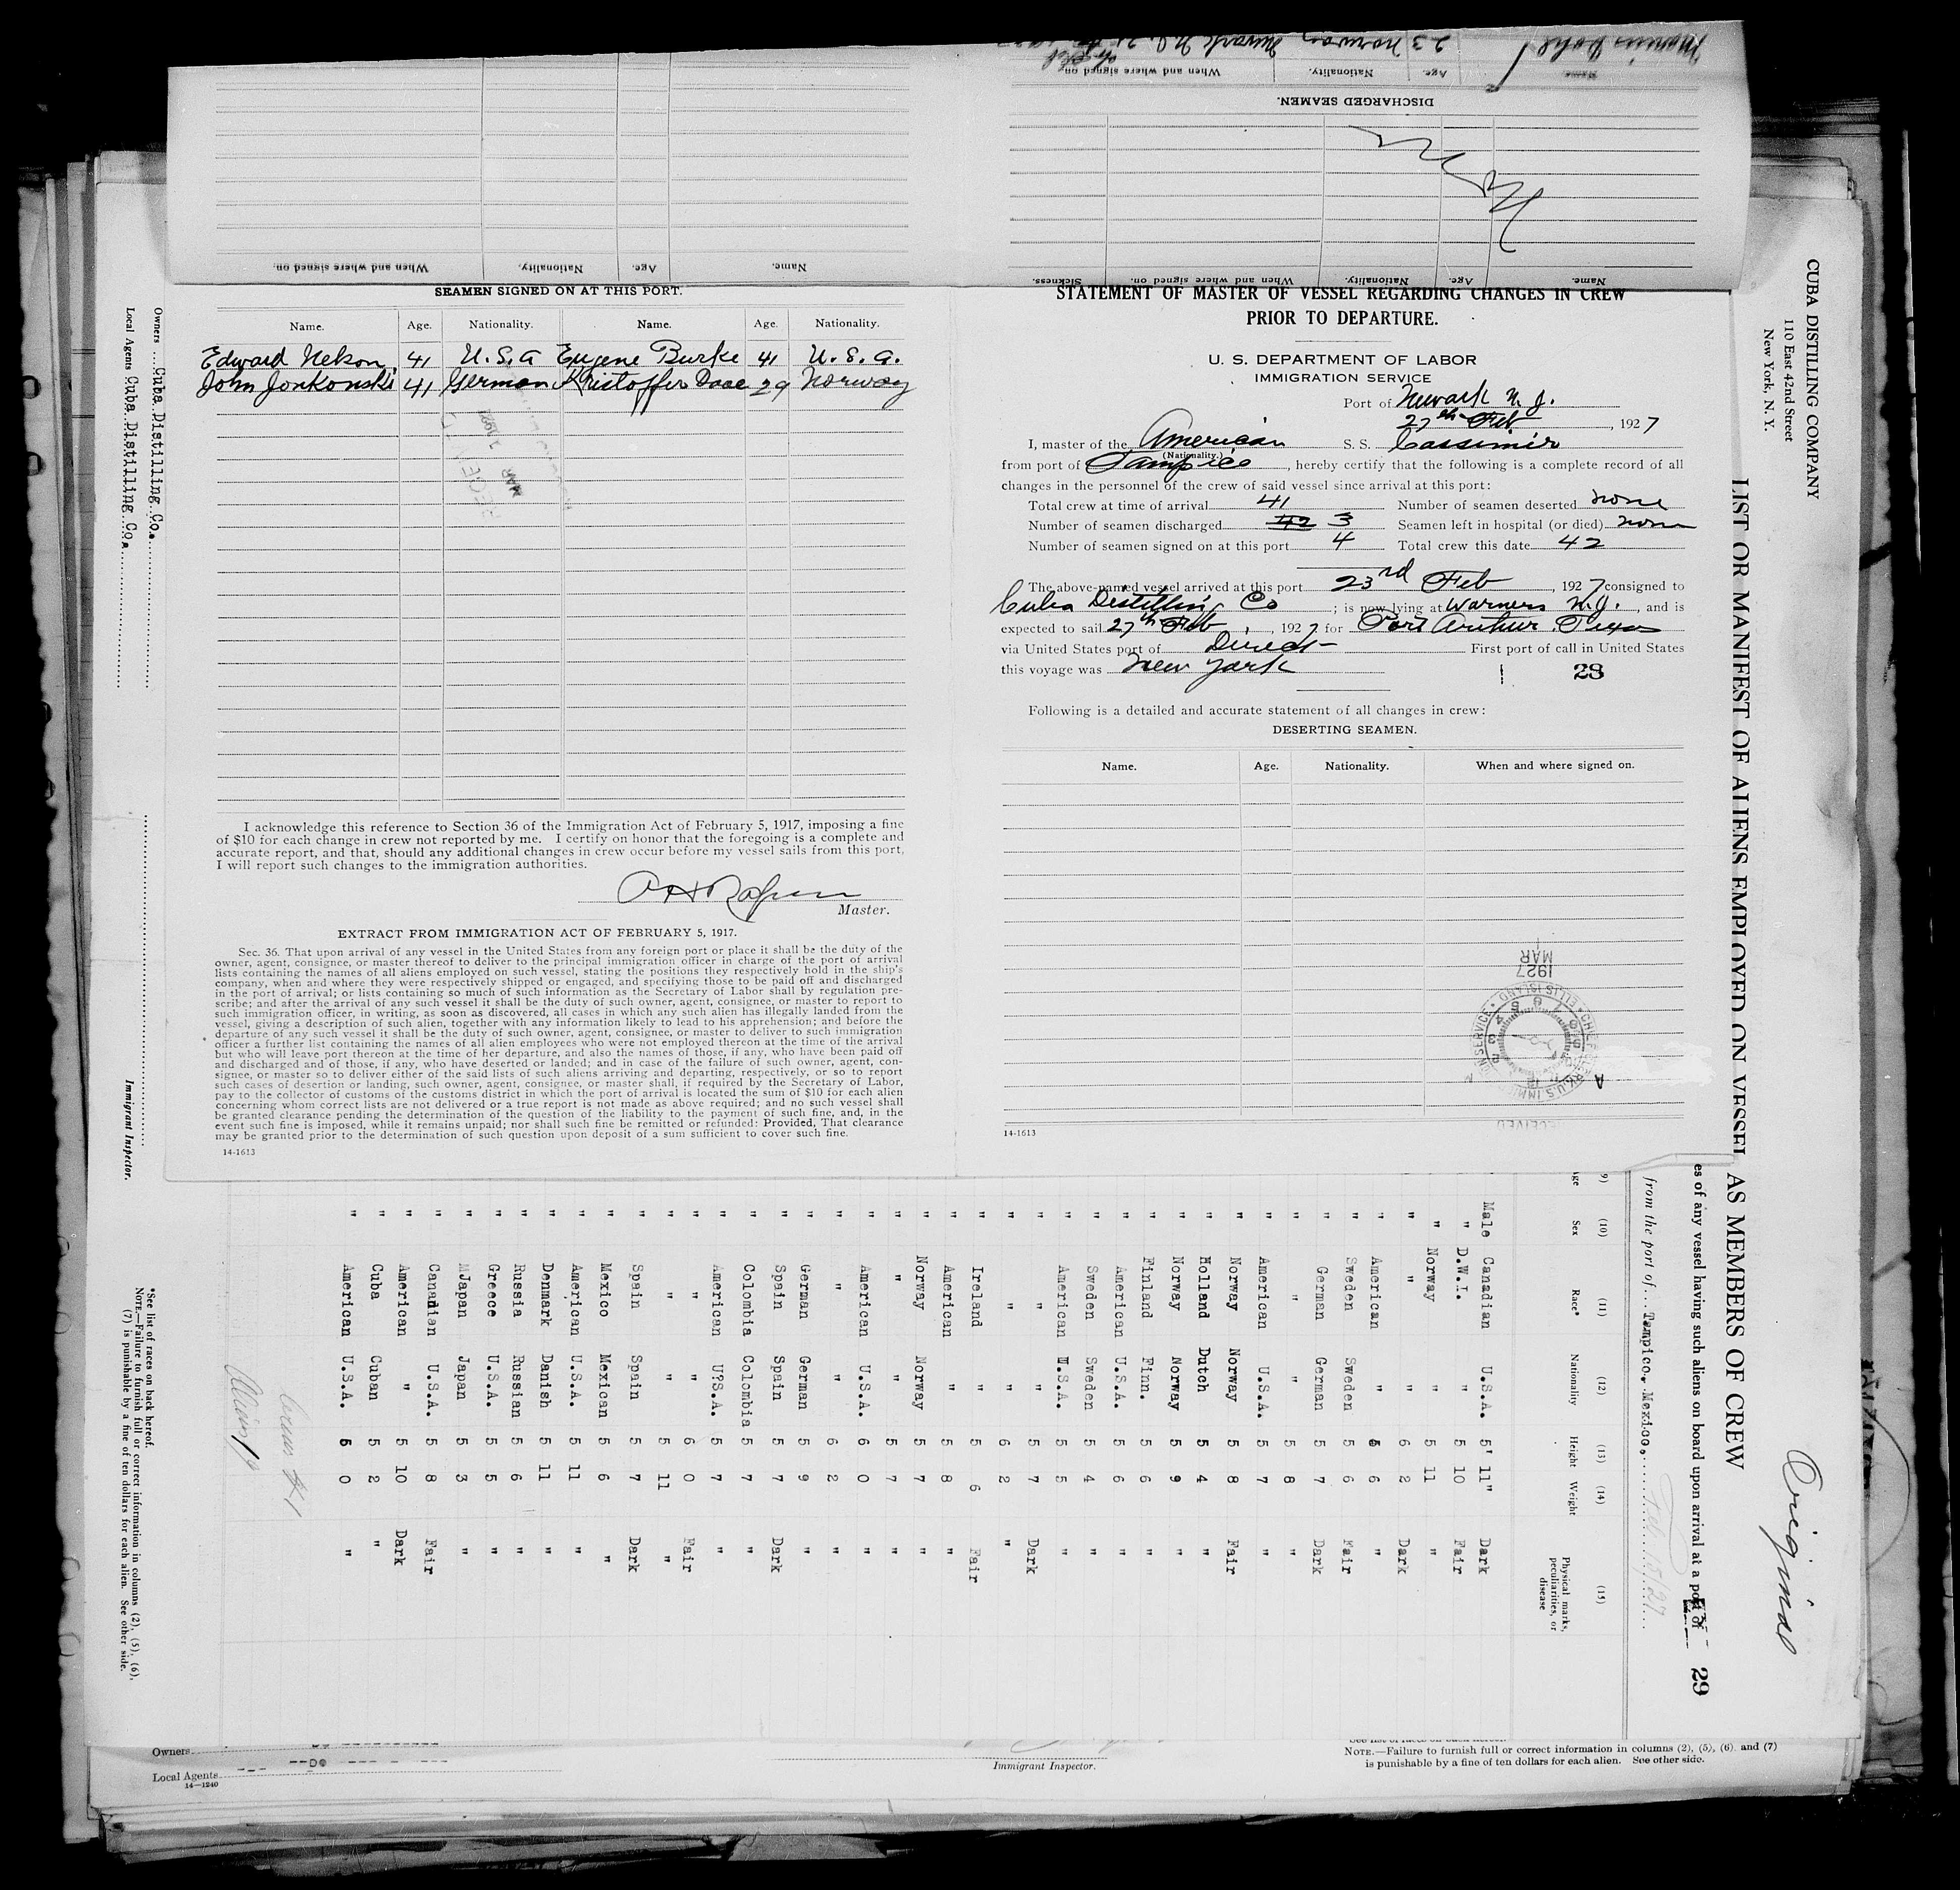 DISCHARGED SEAMEN.
Name. Age. Nationality. When and where signed on.
23 Norway Newark N.J.
Name. Age. Nationality. When and where signed on. Sickness.
Name. Age. Nationality. When and where signed on.
SEAMEN SIGNED ON AT THIS PORT.
Name. Age. Nationality. Name. Age. Nationality.
Edward Nelson. 41 U.S.A Eugene Burke 41 U.S.A.
John Jonkowski 41 German Kristoffer 29 Norway
I acknowledge this reference to Section 36 of the Immigration Act of February 5, 1917, imposing a fine
of $10 for each change in crew not reported by me. I certify on honor that the foregoing is a complete and
accurate report, and that, should any additional changes in crew occur before my vessel sails from this port,
I will report such changes to the immigration authorities.
Master.
EXTRACT FROM IMMIGRATION ACT OF FEBRUARY 5, 1917.
Sec. 36. That upon arrival of any vessel in the United States from any foreign port or place it shall be the duty of the
owner, agent, consignee, or master thereof to deliver to the principal immigration officer in charge of the port of arrival
lists containing the names of all aliens employed on such vessel, stating the positions they respectively hold in the ship's
company, when and where they were respectively shipped or engaged, and specifying those to be paid off and discharged
in the port of arrival; or lists containing so much of such information as the Secretary of Labor shall by regulation pre-
scribe; and after the arrival of any such vessel it shall be the duty of such owner, agent, consignee, or master to report to
such immigration officer, in writing, as soon as discovered, all cases in which any such alien has illegally landed from the
vessel, giving a description of such alien, together with any information likely to lead to his apprehension; and before the
departure of any such vessel it shall be the duty of such owner, agent, consignee, or master to deliver to such immigration
officer a further list containing the names of all alien employees who were not employed thereon at the time of the arrival
but who will leave port thereon at the time of her departure, and also the names of those, if any, who have been paid off
and discharged and of those, if any, who have deserted or landed; and in case of the failure of such owner, agent, con-
signee, or master so to deliver either of the said lists of such aliens arriving and departing, respectively, or so to report
such cases of desertion or landing, such owner, agent, consignee, or master shall, if required by the Secretary of Labor,
pay to the collector of customs of the customs district in which the port of arrival is located the sum of $10 for each alien
concerning whom correct lists are not delivered or a true report is not made as above required; and no such vessel shall
be granted clearance pending the determination of the question of the liability to the payment of such fine, and, in the
event such fine is imposed, while it remains unpaid; nor shall such fine be remitted or refunded: Provided, That clearance
may be granted prior to the determination of such question upon deposit of a sum sufficient to cover such fine.
14-1613
STATEMENT OF MASTER OF VESSEL REGARDING CHANGES IN CREW
PRIOR TO DEPARTURE.
U. S. DEPARTMENT OF LABOR
IMMIGRATION SERVICE
Port of Newark N. J.
27th Feb, 1927
I, master of the American S. S. Cassimir
(Nationality.)
from port of Tampico, hereby certify that the following is a complete record of all
changes in the personnel of the crew of said vessel since arrival at this port:
Total crew at time of arrival 41 Number of seamen deserted none
Number of seamen discharged 42 3 Seamen left in hospital (or died) none
Number of seamen signed on at this port 4 Total crew this date 42
The above-named vessel arrived at this port 23rd Feb, 1927 consigned to
Cuba Distilling Co; is now lying at Warners N.J., and is
expected to sail 27th Feb, 1927 for Port Arthur Texas
via United States port of Direct First port of call in United States
this voyage was New York
28
Following is a detailed and accurate statement of all changes in crew:
DESERTING SEAMEN.
Name. Age. Nationality. When and where signed on.
MAR
1927
14-1613
CUBA DISTILLING COMPANY
110 East 42nd Street
New York, N. Y.
Original
LIST OR MANIFEST OF ALIENS EMPLOYED ON VESSEL AS MEMBERS OF CREW
es of any vessel having such aliens on board upon arrival at a port of
29
from the port of Tampico, Mexico.
(10) (11) (12) (13) (14) (15)
Sex Race* Nationality Height Weight Physical marks, peculiarities, or disease
Male Canadian U.S.A. 5' 11" Dark
" D.W.I. " 5 10 Fair
" Norway " 5 11 "
" " " 6 2 Dark
" American " 6 6 "
" Sweden Sweden 5 6 Fair
" German German 5 7 Dark
" " " 5 8 "
" American U.S.A. 5 7 "
" Norway Norway 5 8 Fair
" Holland Dutch 5 4 "
" Norway Norway 5 9 "
" Finland Finn. 5 6 "
" American U.S.A. 5 6 "
" Sweden Sweden 5 4 "
" American U.S.A. 5 5 "
" " " 5 7 Dark
" " " 6 2 "
" Ireland " 5 6 Fair
" American " 5 8 "
" Norway Norway 5 7 "
" " " 5 7 "
" American U.S.A. 6 0 "
" " " 6 2 "
" German German 5 9 "
" Spain Spain 5 7 Dark
" Colombia Colombia 5 7 "
" American U?S.A. 5 7 "
" " " 6 0 Fair
" " " 5 11 "
" Spain Spain 5 7 Dark
" Mexico Mexican 5 6 "
" American U.S.A. 5 11 "
" Denmark Danish 5 11 "
" Russia Russian 5 6 "
" Greece U.S.A. 5 5 "
" MJapan Japan 5 3 "
" Canadian U.S.A. 5 8 Fair
" American " 5 10 Dark
" Cuba Cuban 5 2 "
" American U.S.A. 5 0 "
Owners Cuba Distilling Co.
Local Agents Cuba Distilling Co.
Immigrant Inspector.
*See list of races on back hereof.
NOTE.—Failure to furnish full or correct information in columns (2), (5), (6),
(7) is punishable by a fine of ten dollars for each alien. See other side.
Owners
Local Agents --Do
14—1240
Immigrant Inspector.
NOTE.—Failure to furnish full or correct information in columns (2), (5), (6) and (7)
is punishable by a fine of ten dollars for each alien. See other side.